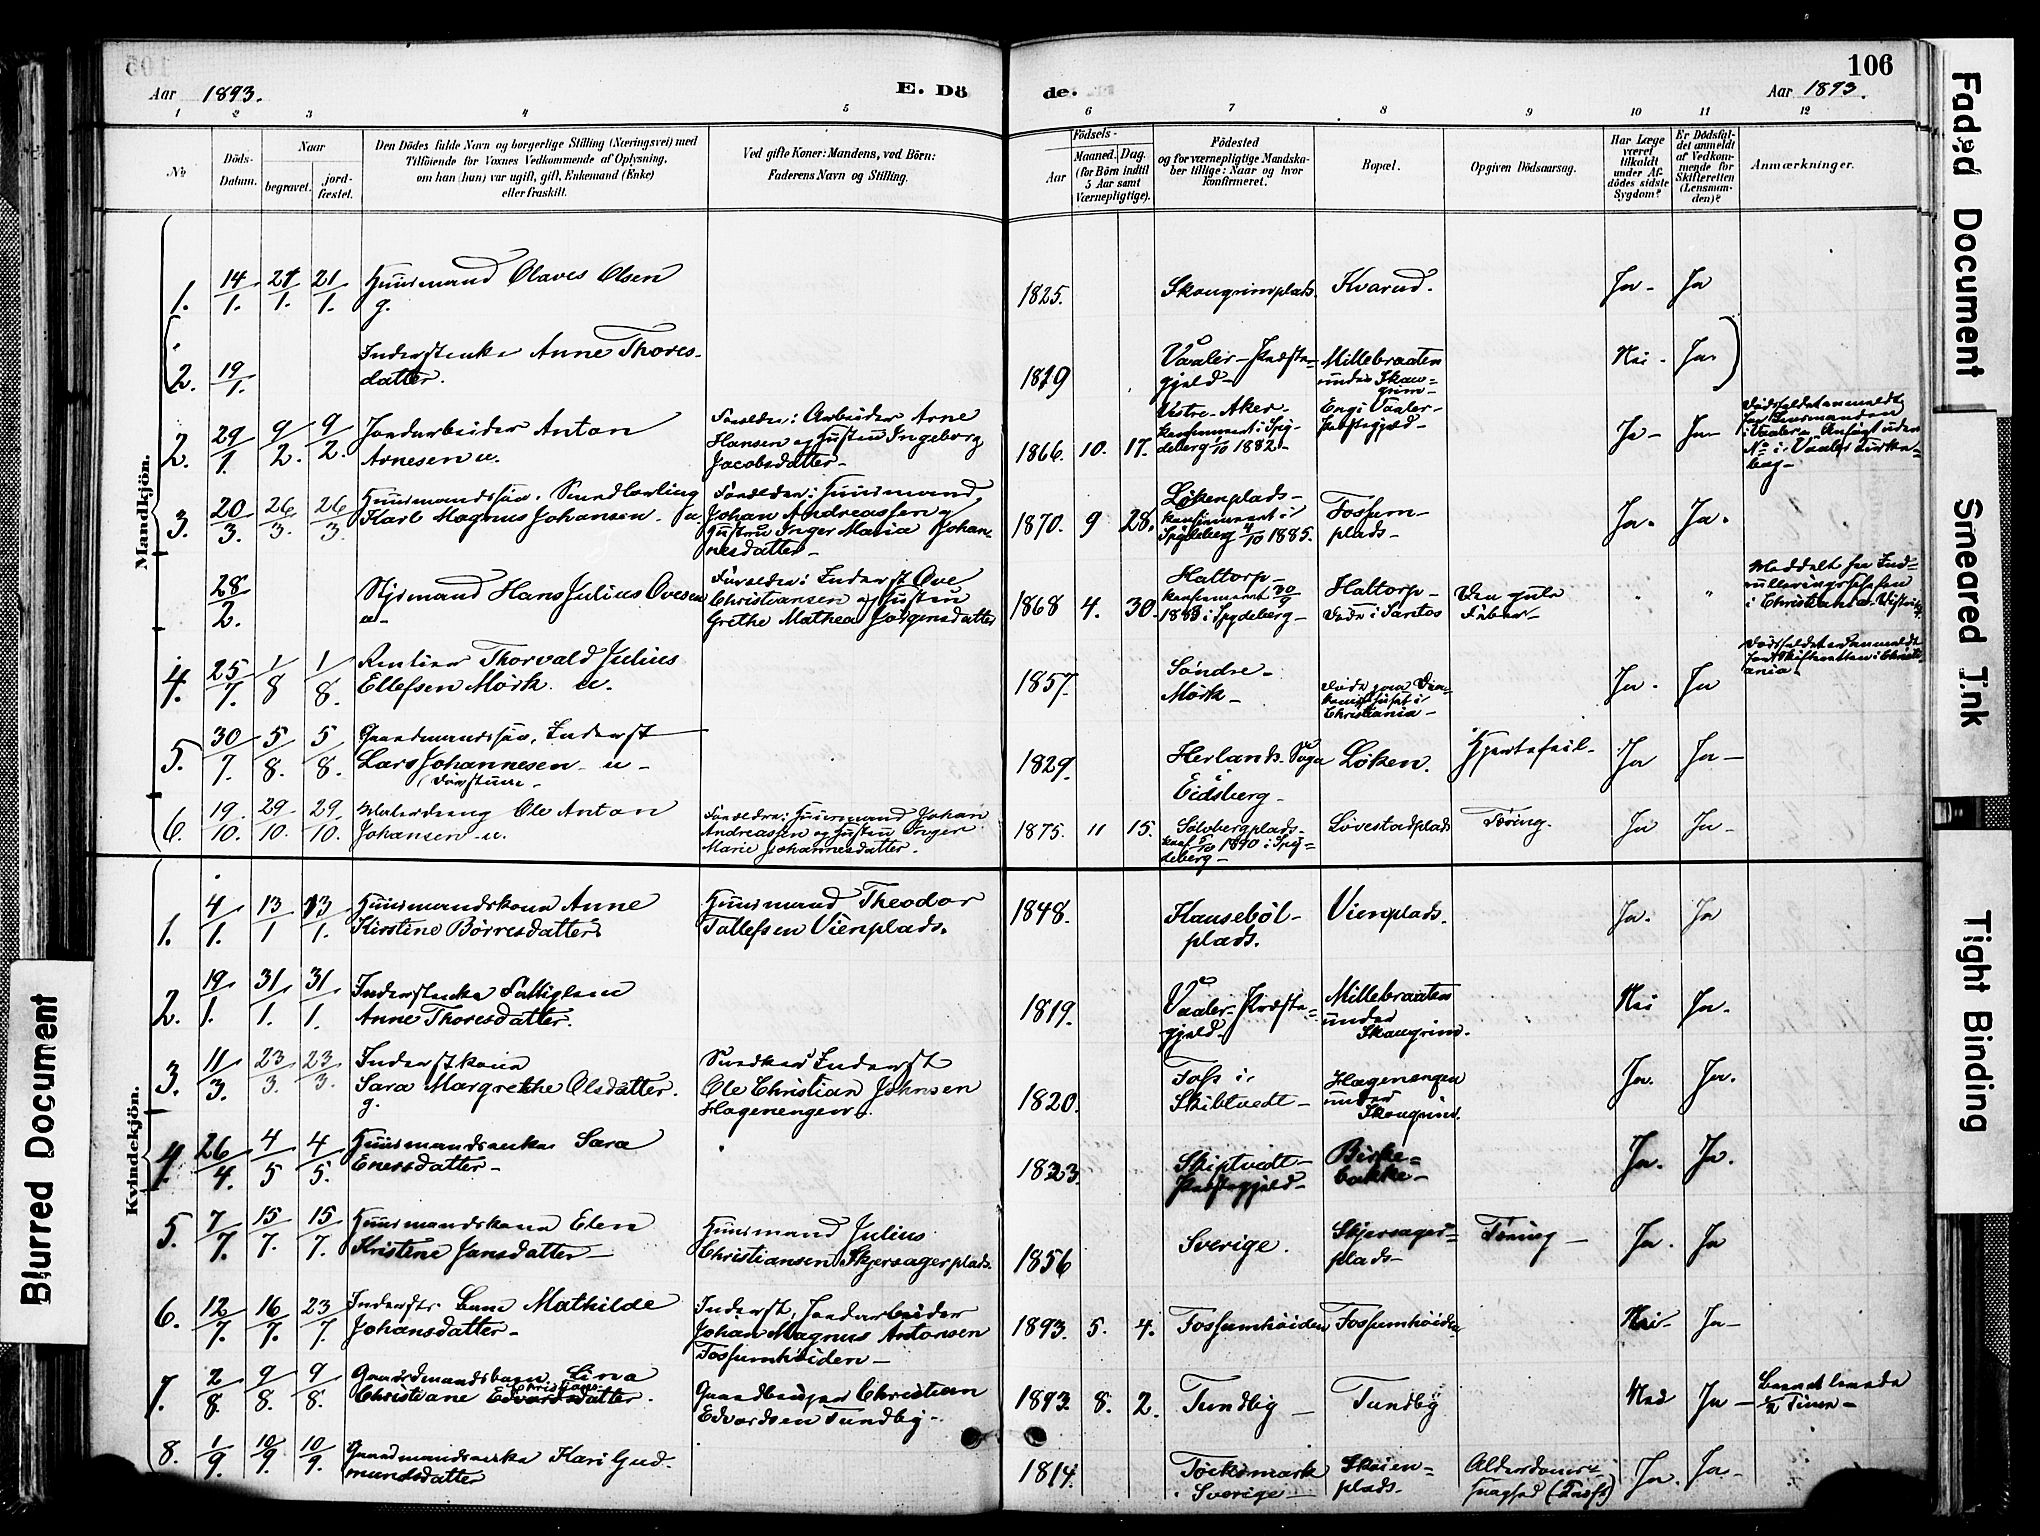 106
Aar 1893.
E. Dö
de.
Aar 1893.
1 2 3 4 5 6 7 8 9 10 11 12
No
Döds-
Datum.
Naar
begravet.
jord-
fæstet.
Den Dödes fulde Navn og borgerlige Stilling (Næringsvei) med
Tilföiende for Voxnes Vedkommende af Oplysning,
om han (hun) var ugift, gift, Enkemand (Enke)
eller fraskilt.
Ved gifte Koner: Mandens, ved Börn:
Faderens Navn og Stilling.
Födsels-
Aar
Maaned. Dag.
(for Börn indtil
5 Aar samt
Værnepligtige).
Födested
og for værnepligtige Mandska-
ber tillige: Naar og hvor
konfirmeret.
Bopæl.
Opgiven Dödsaarsag.
Har Læge
været
tilkaldt
under Af-
dödes sidste
Sygdom?
Er Dödsfal-
det anmeldt
af Vedkom-
mende for
Skifteretten
(Lensman-
den)?
Anmærkninger.
Mandkjön.
1. 14/1. 21/1. 21/1. Huusmand Olaves Olsen
g.
1825. Skougrimplads. Kvarud. Ja- Ja
2. 19/1. Inderstenke Anne Thores-
datter.
1819 Vaaler-Præste-
gjeld-
Millebraaten
under Skou-
grim-
Nei- Ja-
2. 29/1. 9/2. 9/2. Jordarbeider Anton
Arnesen u.
Forældre: Arbeider Arne
Hansen og Hustru Ingeborg
Jacobsdatter-
1866. 10. 17. Vestre-Aker-
konfirmeret i Spy-
deberg 1/10 1882-
Engi Vaaler-
Præstegjeld-
Ja- Ja-
Dødsfaldet anmeldt
for Lensmanden
i Vaaler.
3. 20/3. 26/3. 26/3. Huusmandssøn. Smedlærling
Karl Magnus Johansen. u
Forældre: Huusmand
Johan Andreassen og
Hustru Inger Maria Johan-
nesdatter-
1870. 9 28. Løkenplads-
konfirmeret i
Spydeberg 4/10 1885.
Fossum-
plads-
Ja. Ja.
28/2. Styrmand Hans Julius Ovesen
u-
Forældre: Inderst Ove
Christiansen og Hustru
Grethe Mathea Jørgensdatter
1868 4. 30. Hattorp-
konfirmeret 30/9
1883 i Spydeberg-
Hattorp-
Døde i Santos
Den gule
Feber-
Meddelt fra Ind-
rulleringschefen
i Christiania Distrikt.
4. 25/7. 1/8 1/8. Rentier Thorvald Julius
Ellefsen Mørk. u.
1857. Søndre-
Mørk-
døde paa Dia-
konissehuset i
Christiania-
Ja. Ja
Dødsfaldet er anmeldt
for Skifteretten i Christi-
ania-
5. 30/7. 5/8. 5/8. Gaardmandssøn, Inderst
Lars Johannesen- u-
1829. Herland-Sogn
i
Eidsberg-
Løken. Hjertefeil- Ja Ja-
6. 19/10. 29/10. 29/10. Malerdreng Ole Anton
Johansen-u.
Forældre: Huusmand Johan
Andreassen og Hustru Inger
Marie Johannesdatter.
1875. 11 15. Solbergplads-
konf. 5/10 1890 i Spy-
deberg-
Løvestadplads Tæring. Ja Ja-
Kvindekjön.
1. 4/1. 13/1 13/1. Huusmandskone Anne
Kirstine Børresdatter
Huusmand Theodor
Tollefsen Vienplads.
1848. Hausebøl-
plads.
Vienplads. Ja. Ja
2. 19/1. 31/1. 31/1. Inderstenke Fattiglem
Anne Thoresdatter.
1819. Vaaler-Præste-
gjeld-
Millebraaten
under
Skougrim.
Nei Ja.
3. 11/3. 23/3. 23/3. Inderstkone
Sara Margrethe Olsdatter.
g.
Snedker Inderst
Ole Christian Johnsen
Hagenengen.
1820. Foss i
Skibtvedt-
Hagenengen
under
Skougrim.
Ja. Ja.
4. 26/4. 4/5 4/5. Huusmandsenke Sara
Enersdatter-
1823. Skiptvedt-
Præstegjeld-
Birke-
bakke-
Ja. Ja.
5. 7/7. 15/7. 15/7. Huusmandskone Elen
Kristine Jansdatter-
Huusmand Julius
Christiansen Skjersagerplads.
1856 Sverige. Skjersager-
plads-
Tæring- Ja. Ja
6. 12/7. 16/7. 23/7. Inderstb. Lene Mathilde
Johansdatter-
Inderst, Jordarbeider
Johan Magnus Antonsen
Fossumhøiden-
1893. 5. 4. Fossumhøiden Fossumhøiden Nei- Ja-
7. 2/8. 9/8. 9/8. Gaardmandsbarn Lina
Christians-
Christiane Edvardsdatter.
Gaardbruger Christian
Edvardsen Tundby-
1893. 8. 2. Tundby- Tundby Nei Ja-
Barnet levede
1/2 Time-
8. 1/9. 10/9. 10/9. Gaardmandsenke Kari Gud-
mundsdatter
1814. Töcksmark
Sverige-
Skoien-
plads-
Alderdoms-
svaghed
Ja. Ja-
Faded Document
Smeared Ink
Tight Binding
Blurred Document